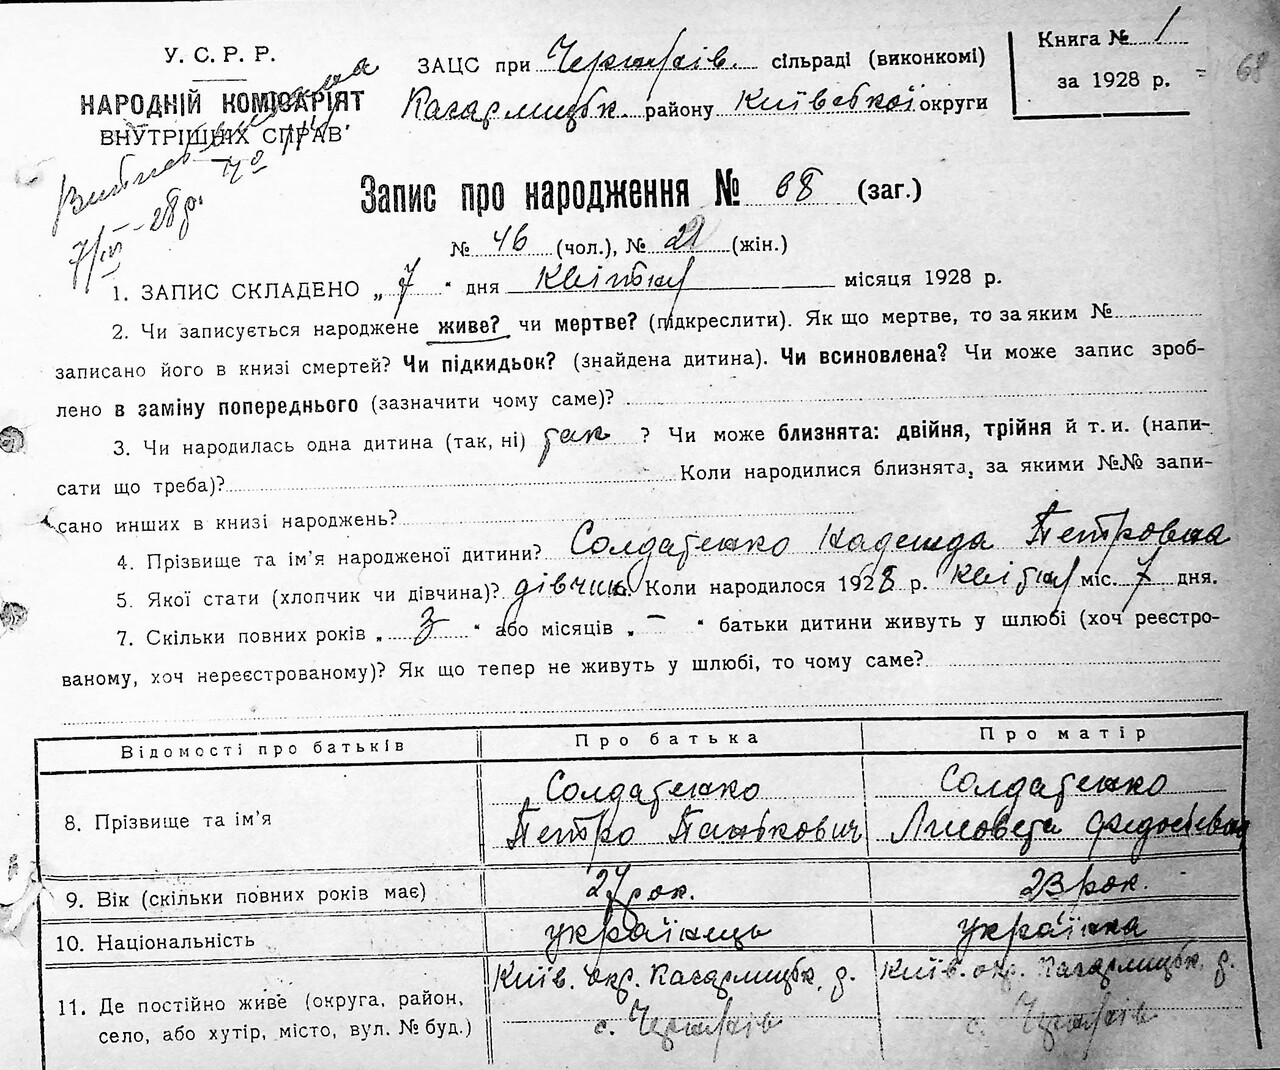 У. С. Р. Р.
НАРОДНІЙ КОМІСАРІЯТ
ВНУТРІШНІХ СПРАВ
ЗАЦС при сільраді (виконкомі)
Кагарлицьк. району Київської округи
Книга № 1
за 1928 р.
68
Запис про народження № 68 (заг.)
№ 46 (чол.), № 22 (жін.)
1. ЗАПИС СКЛАДЕНО „ 7 “ дня Квітня місяця 1928 р.
2. Чи записується народжене живе? чи мертве? (підкреслити). Як що мертве, то за яким №
записано його в книзі смертей? Чи підкидьок? (знайдена дитина). Чи всиновлена? Чи може запис зроб-
лено в заміну попереднього (зазначити чому саме)?
3. Чи народилась одна дитина (так, ні) так ? Чи може близнята: двійня, трійня й т. и. (напи-
сати що треба)? Коли народилися близнята, за якими №№ запи-
сано инших в книзі народжень?
4. Прізвище та ім’я народженої дитини? Солдатенко Надежда Петровна
5. Якої стати (хлопчик чи дівчина)? дівчин. Коли народилося 1928 р. Квітня міс. 7 дня.
7. Скільки повних років „ 3 “ або місяців „ — “ батьки дитини живуть у шлюбі (хоч реєстро-
ваному, хоч нереєстрованому)? Як що тепер не живуть у шлюбі, то чому саме?
Відомості про батьків Про батька Про матір
8. Прізвище та ім’я Солдатенко Петро Панькович Солдатенко Лисовета Федосіевна
9. Вік (скільки повних років має) 27 рок. 23 рок.
10. Національність українець українка
11. Де постійно живе (округа, район, Київ. окр. Кагарлицьк. р. Київ. окр. Кагарлицьк. р.
село, або хутір, місто, вул. № буд.) с. с.